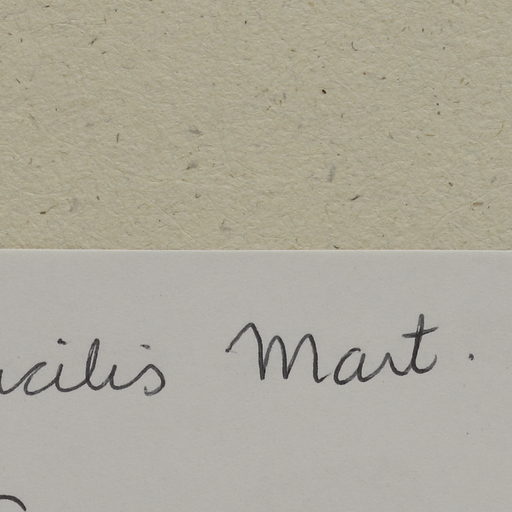 acilis Mart.